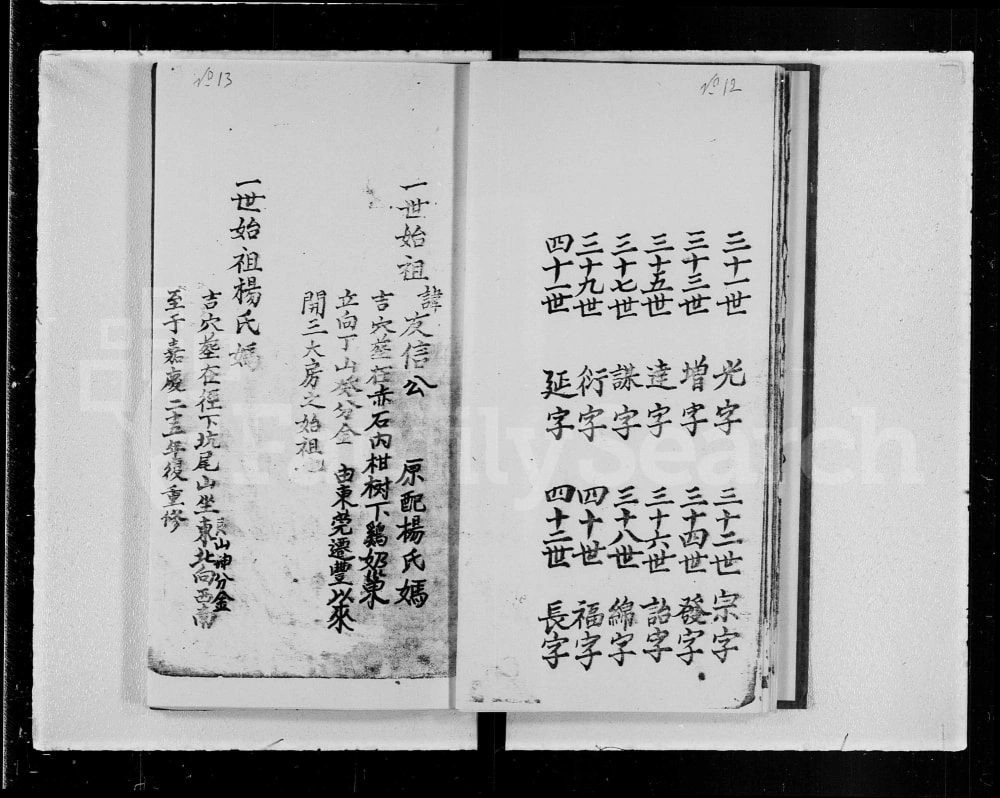 No 12
三十一世 光字 三十二世 宗字
三十三世 增字 三十四世 發字
三十五世 達字 三十六世 詒字
三十七世 謀字 三十八世 綿字
三十九世 衍字 四十世 福字
四十一世 延字 四十二世 長字
No 13
一世始祖諱友信公 原配楊氏媽
吉穴塟在赤石內柑树下鷄𡛥巢
立向丁山癸分金 由東莞遷豐以來
開三大房之始祖
一世始祖楊氏媽
吉穴塟在徑下坑尾山坐東北向西南
艮山坤分金
至于嘉慶二十五年復重修
FamilySearch